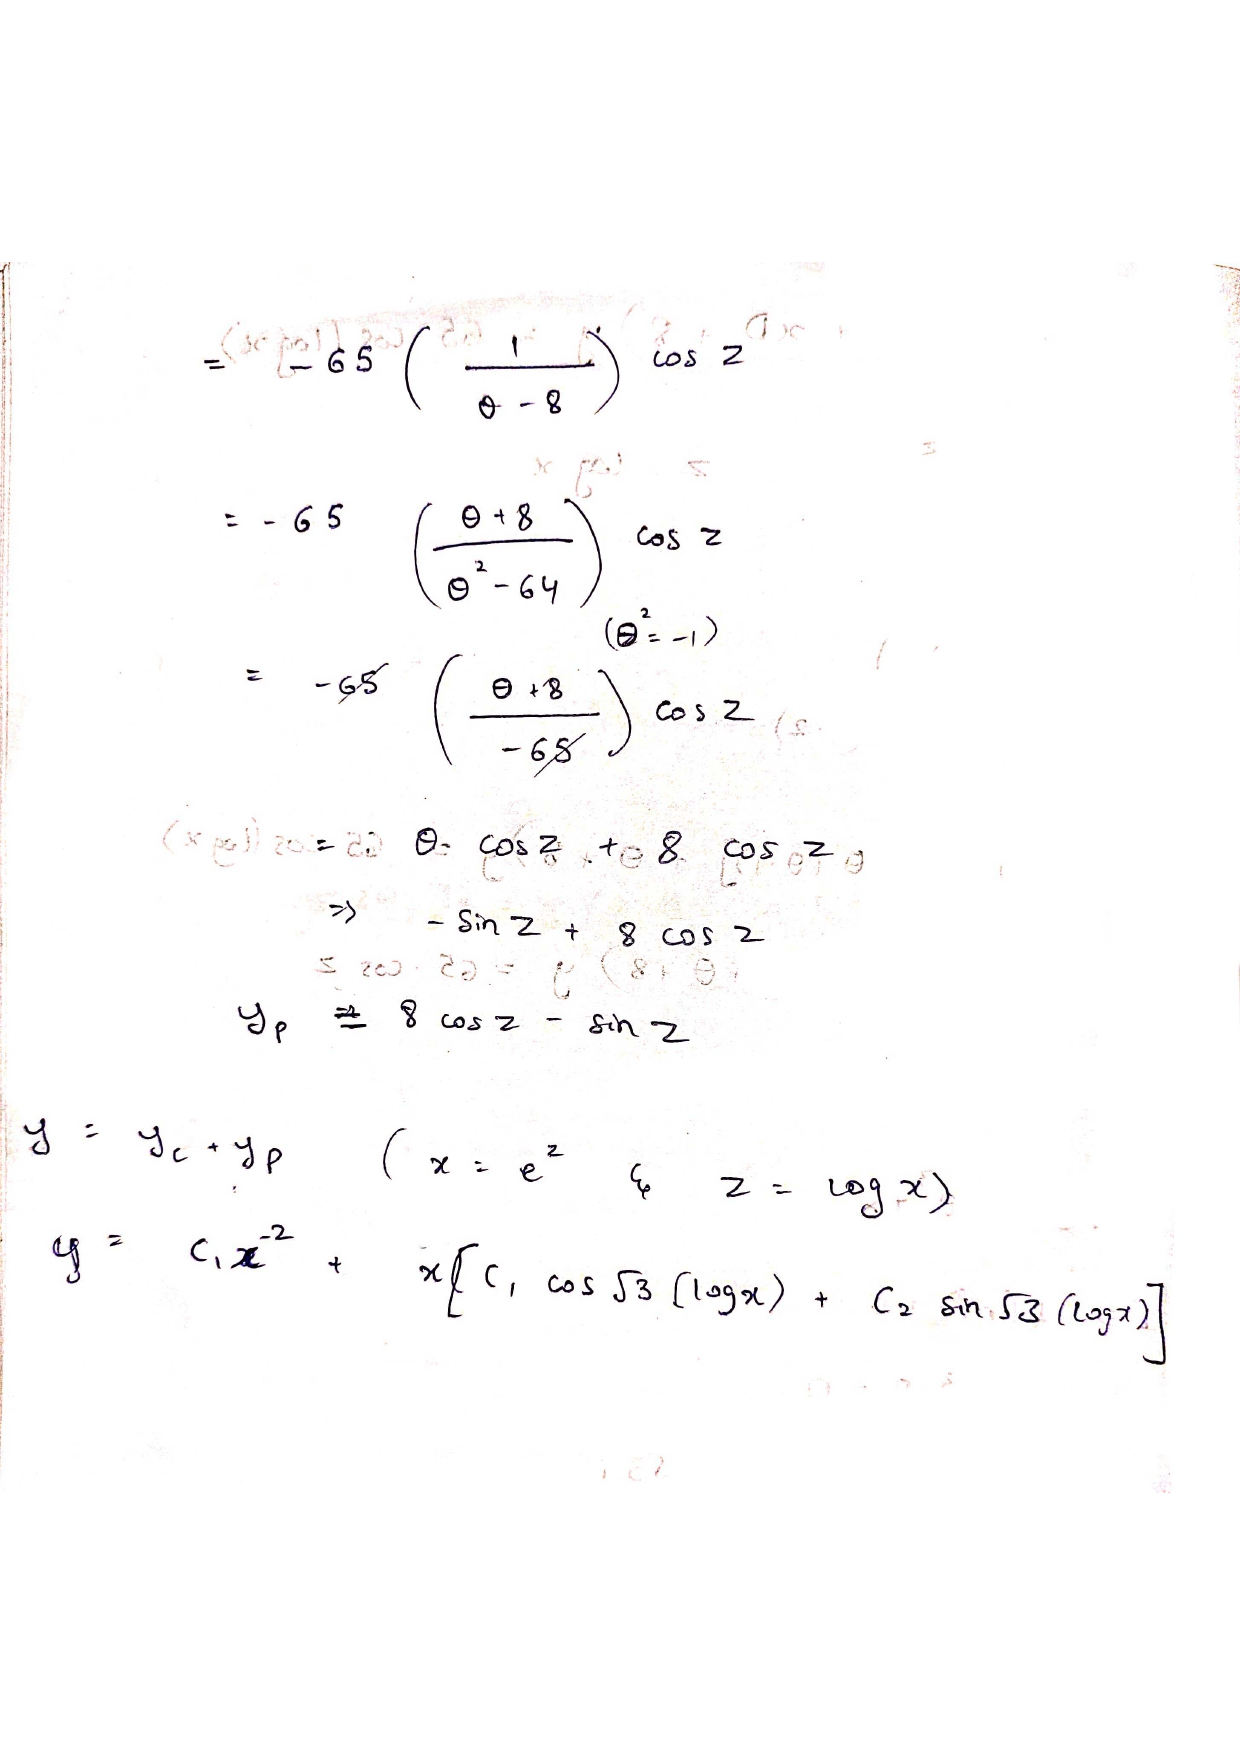 = - 65 ( 1 / θ - 8 ) cos z
= - 65 ( θ + 8 / θ² - 64 ) cos z
(θ² = -1)
= - 65 ( θ + 8 / - 65 ) cos z
= θ. cos z + 8 cos z
=> - sin z + 8 cos z
yp = 8 cos z - sin z
y = yc + yp ( x = e^z & z = log x)
y = c₁x⁻² + x[ c₁ cos √3 (log x) + c₂ sin √3 (log x)]